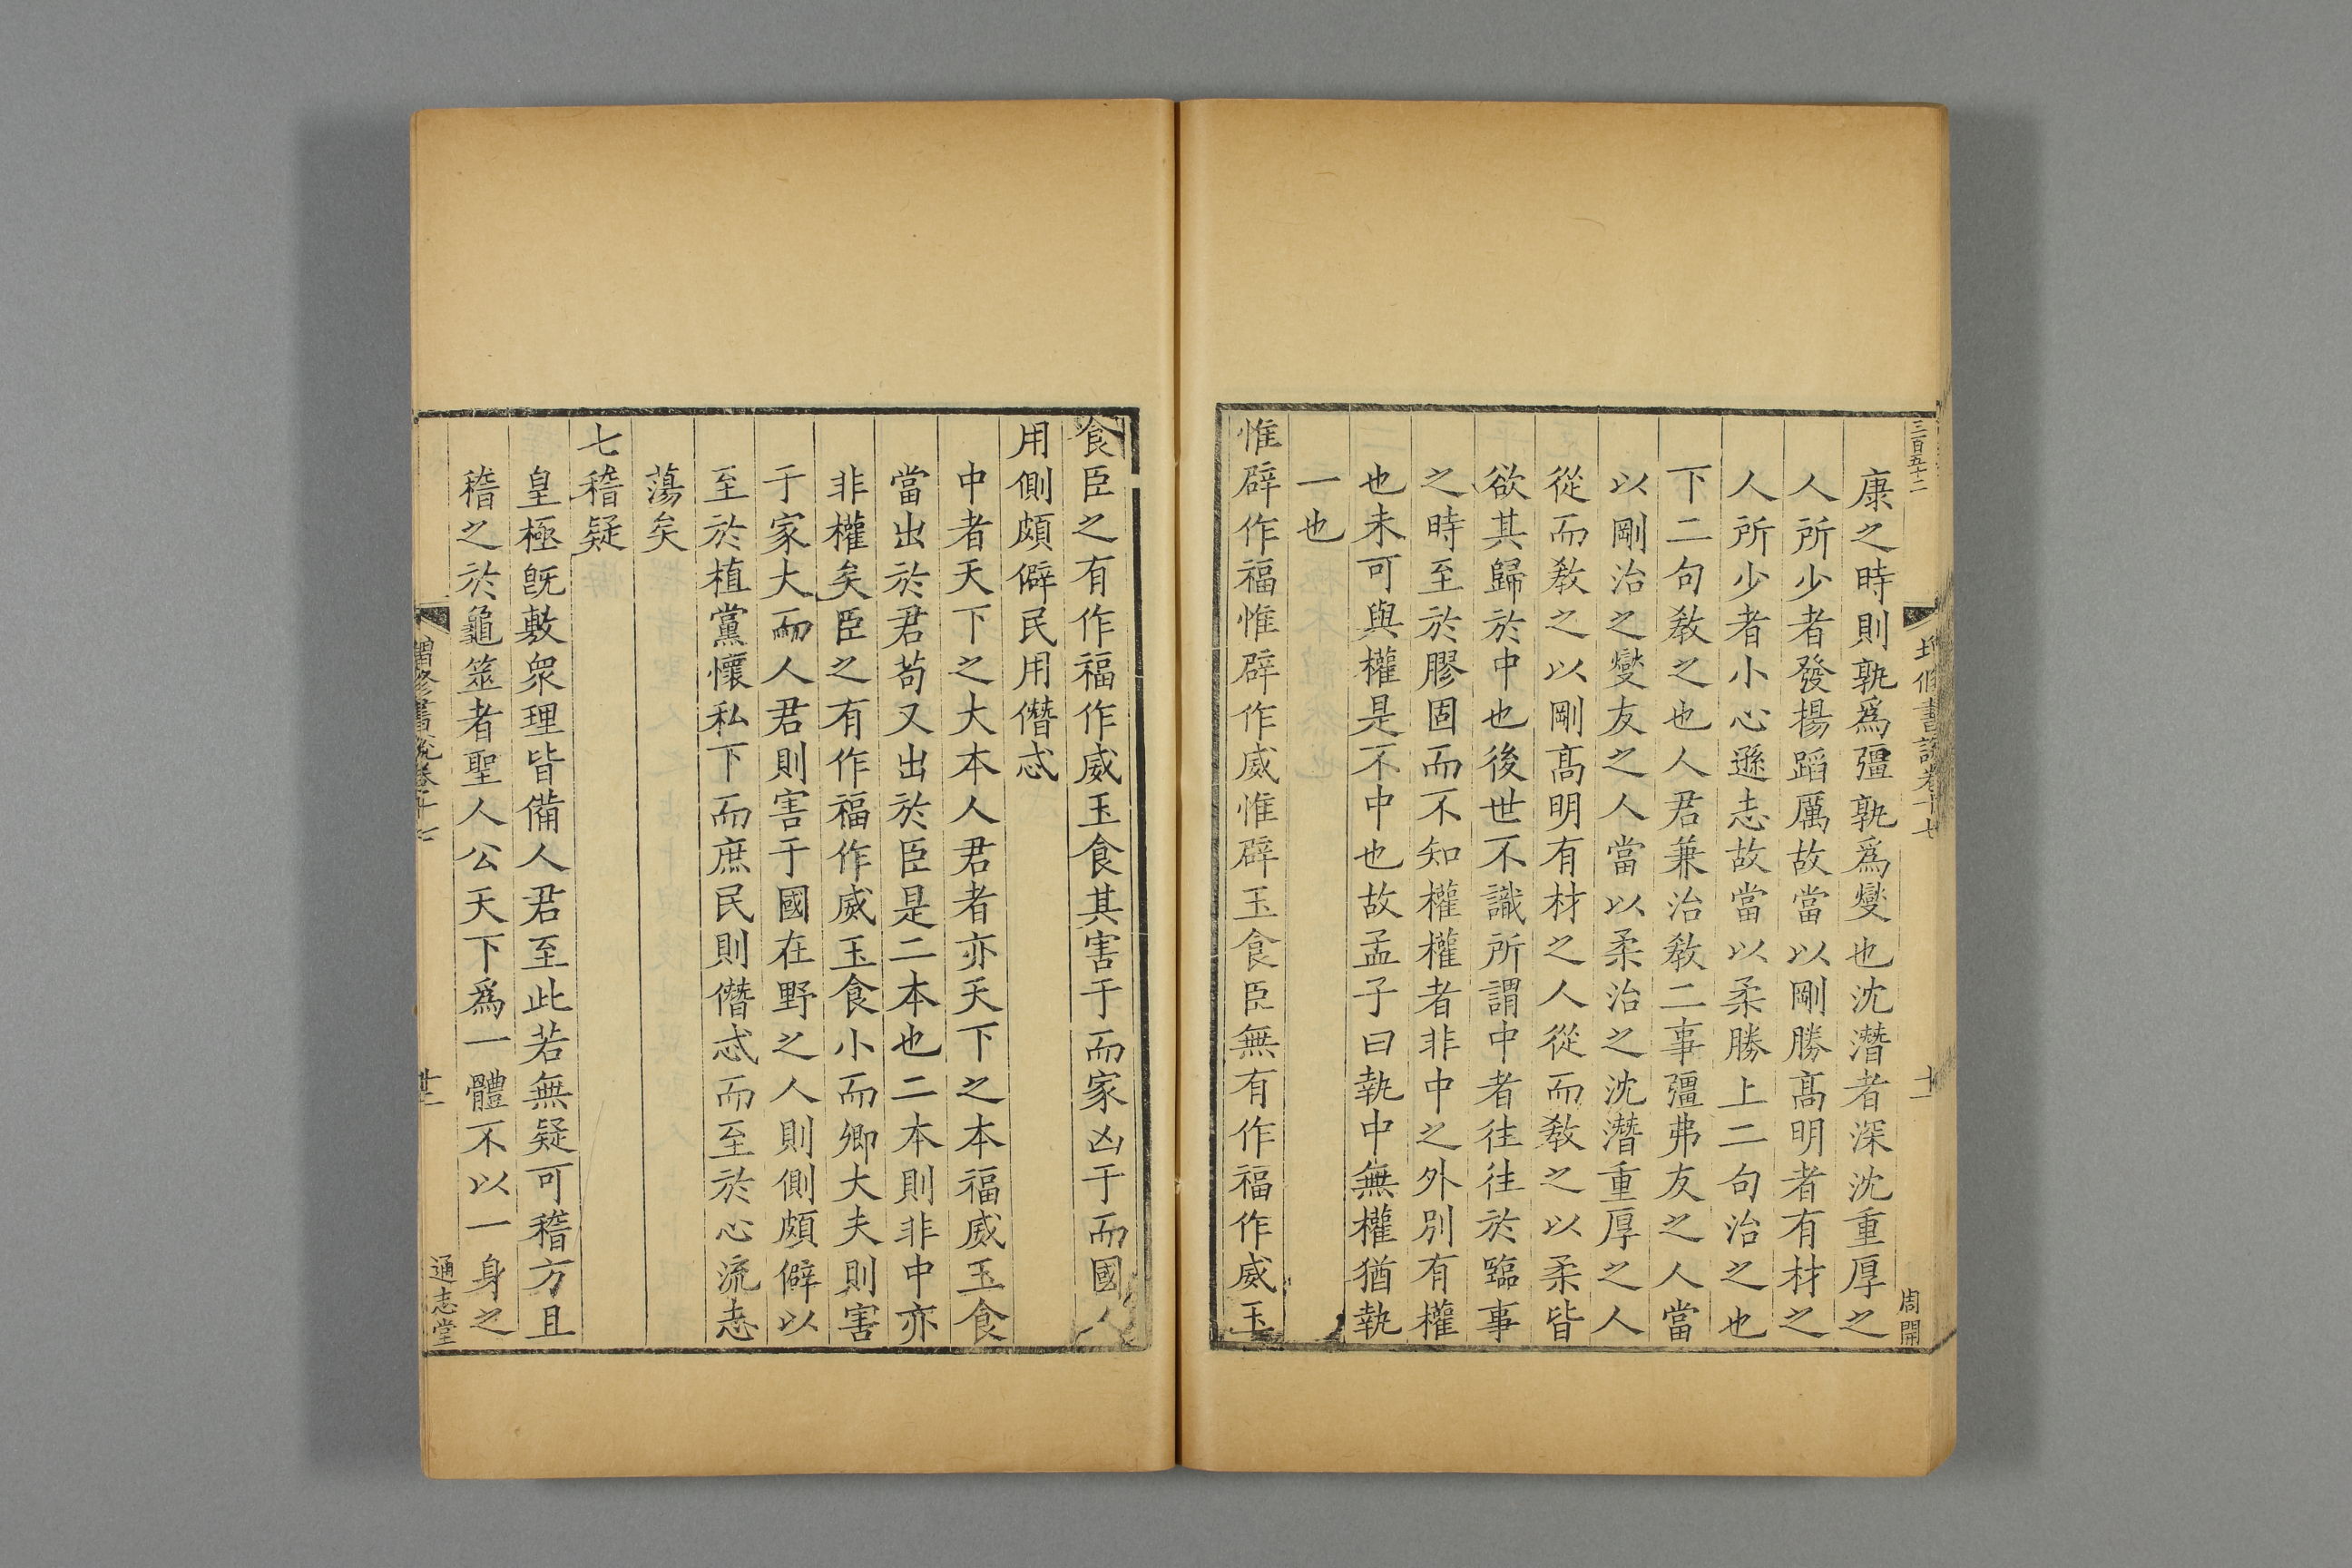 三百五十二
周開
康之時則孰爲彊孰爲燮也沈潛者深沈重厚之
人所少者發揚蹈厲故當以剛勝髙明者有材之
人所少者小心遜志故當以柔勝上二句治之也
下二句敎之也人君兼治敎二事彊弗友之人當
以剛治之燮友之人當以柔治之沈潛重厚之人
從而敎之以剛髙明有材之人從而敎之以柔皆
欲其歸於中也後世不識所謂中者往往於臨事
之時至於膠固而不知權權者非中之外別有權
也未可與權是不中也故孟子曰執中無權猶執
一也
惟辟作福惟辟作威惟辟玉食臣無有作福作威玉
食臣之有作福作威玉食其害于而家凶于而國人
用側頗僻民用僭忒
中者天下之大本人君者亦天下之本福威玉食
當出於君苟又出於臣是二本也二本則非中亦
非權矣臣之有作福作威玉食小而卿大夫則害
于家大而人君則害于國在野之人則側頗僻以
至於植黨懷私下而庶民則僭忒而至於心流志
蕩矣
七稽疑
皇極旣敷衆理皆備人君至此若無疑可稽方且
稽之於龜筮者聖人公天下爲一體不以一身之
增修書說卷二十七
通志堂